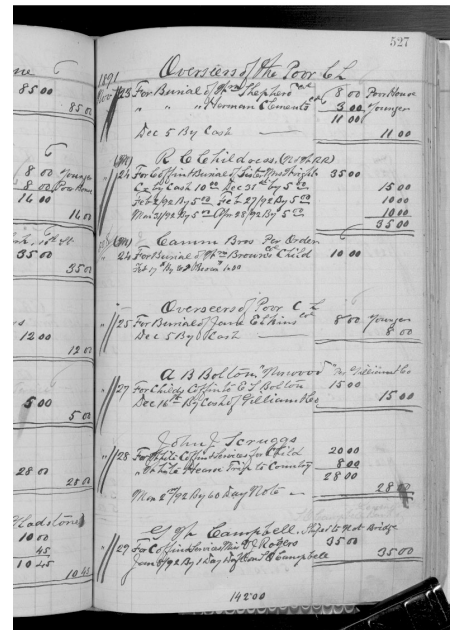 527
1891 Overseers of the Poor C L
Nov 23 For Burial of Wm Shepherd col 8 00 Poor House
" " " Herman Clements col 3 00 Younger
11 00
Dec 5 By Cash 11 00
R. C. Childress,
24 For Coffin & Burial of Sister Mrs Wright 35 00
Cr by Cash 10 00 Dec 31st by 5 00 15 00
Feb 2/92 By 5 00 Feb 27/92 By 5 00 10 00
Mar 31/92 By 5 00 Apr 28/92 By 5 00 10 00
35 00
Camm Bros Per Order
24 For Burial of Wm Brown's Child 10 00
Feb 17
Overseers of Poor C L
" 25 For Burial of Jane Elkins col 8 00 Younger
Dec 5 By Cash 8 00
A B Bolton, "Norwood" Per Gilliam & Co
" 27 For Childs Coffin to E T Bolton 15 00
Dec 16th By Cash of Gilliam & Co 15 00
John J Scruggs
" 28 For White Coffin & Services for Child 20 00
" White Hearse Trip to Country 8 00
28 00
2nd/92 By 60 Day Note 28 00
Campbell. Ship to Nat Bridge
" 29 For Coffin & Services Rogers 35 00
Jan 8/92 By 1 Day Campbell 35 00
142 00
85 00
85 00
8 00 Younger
8 00 Poor House
16 00
16 00
35 00
35 00
12 00
12 00
5 00
5 00
28 00
28 00
Gladstone
10 00
45
10 45
10 45